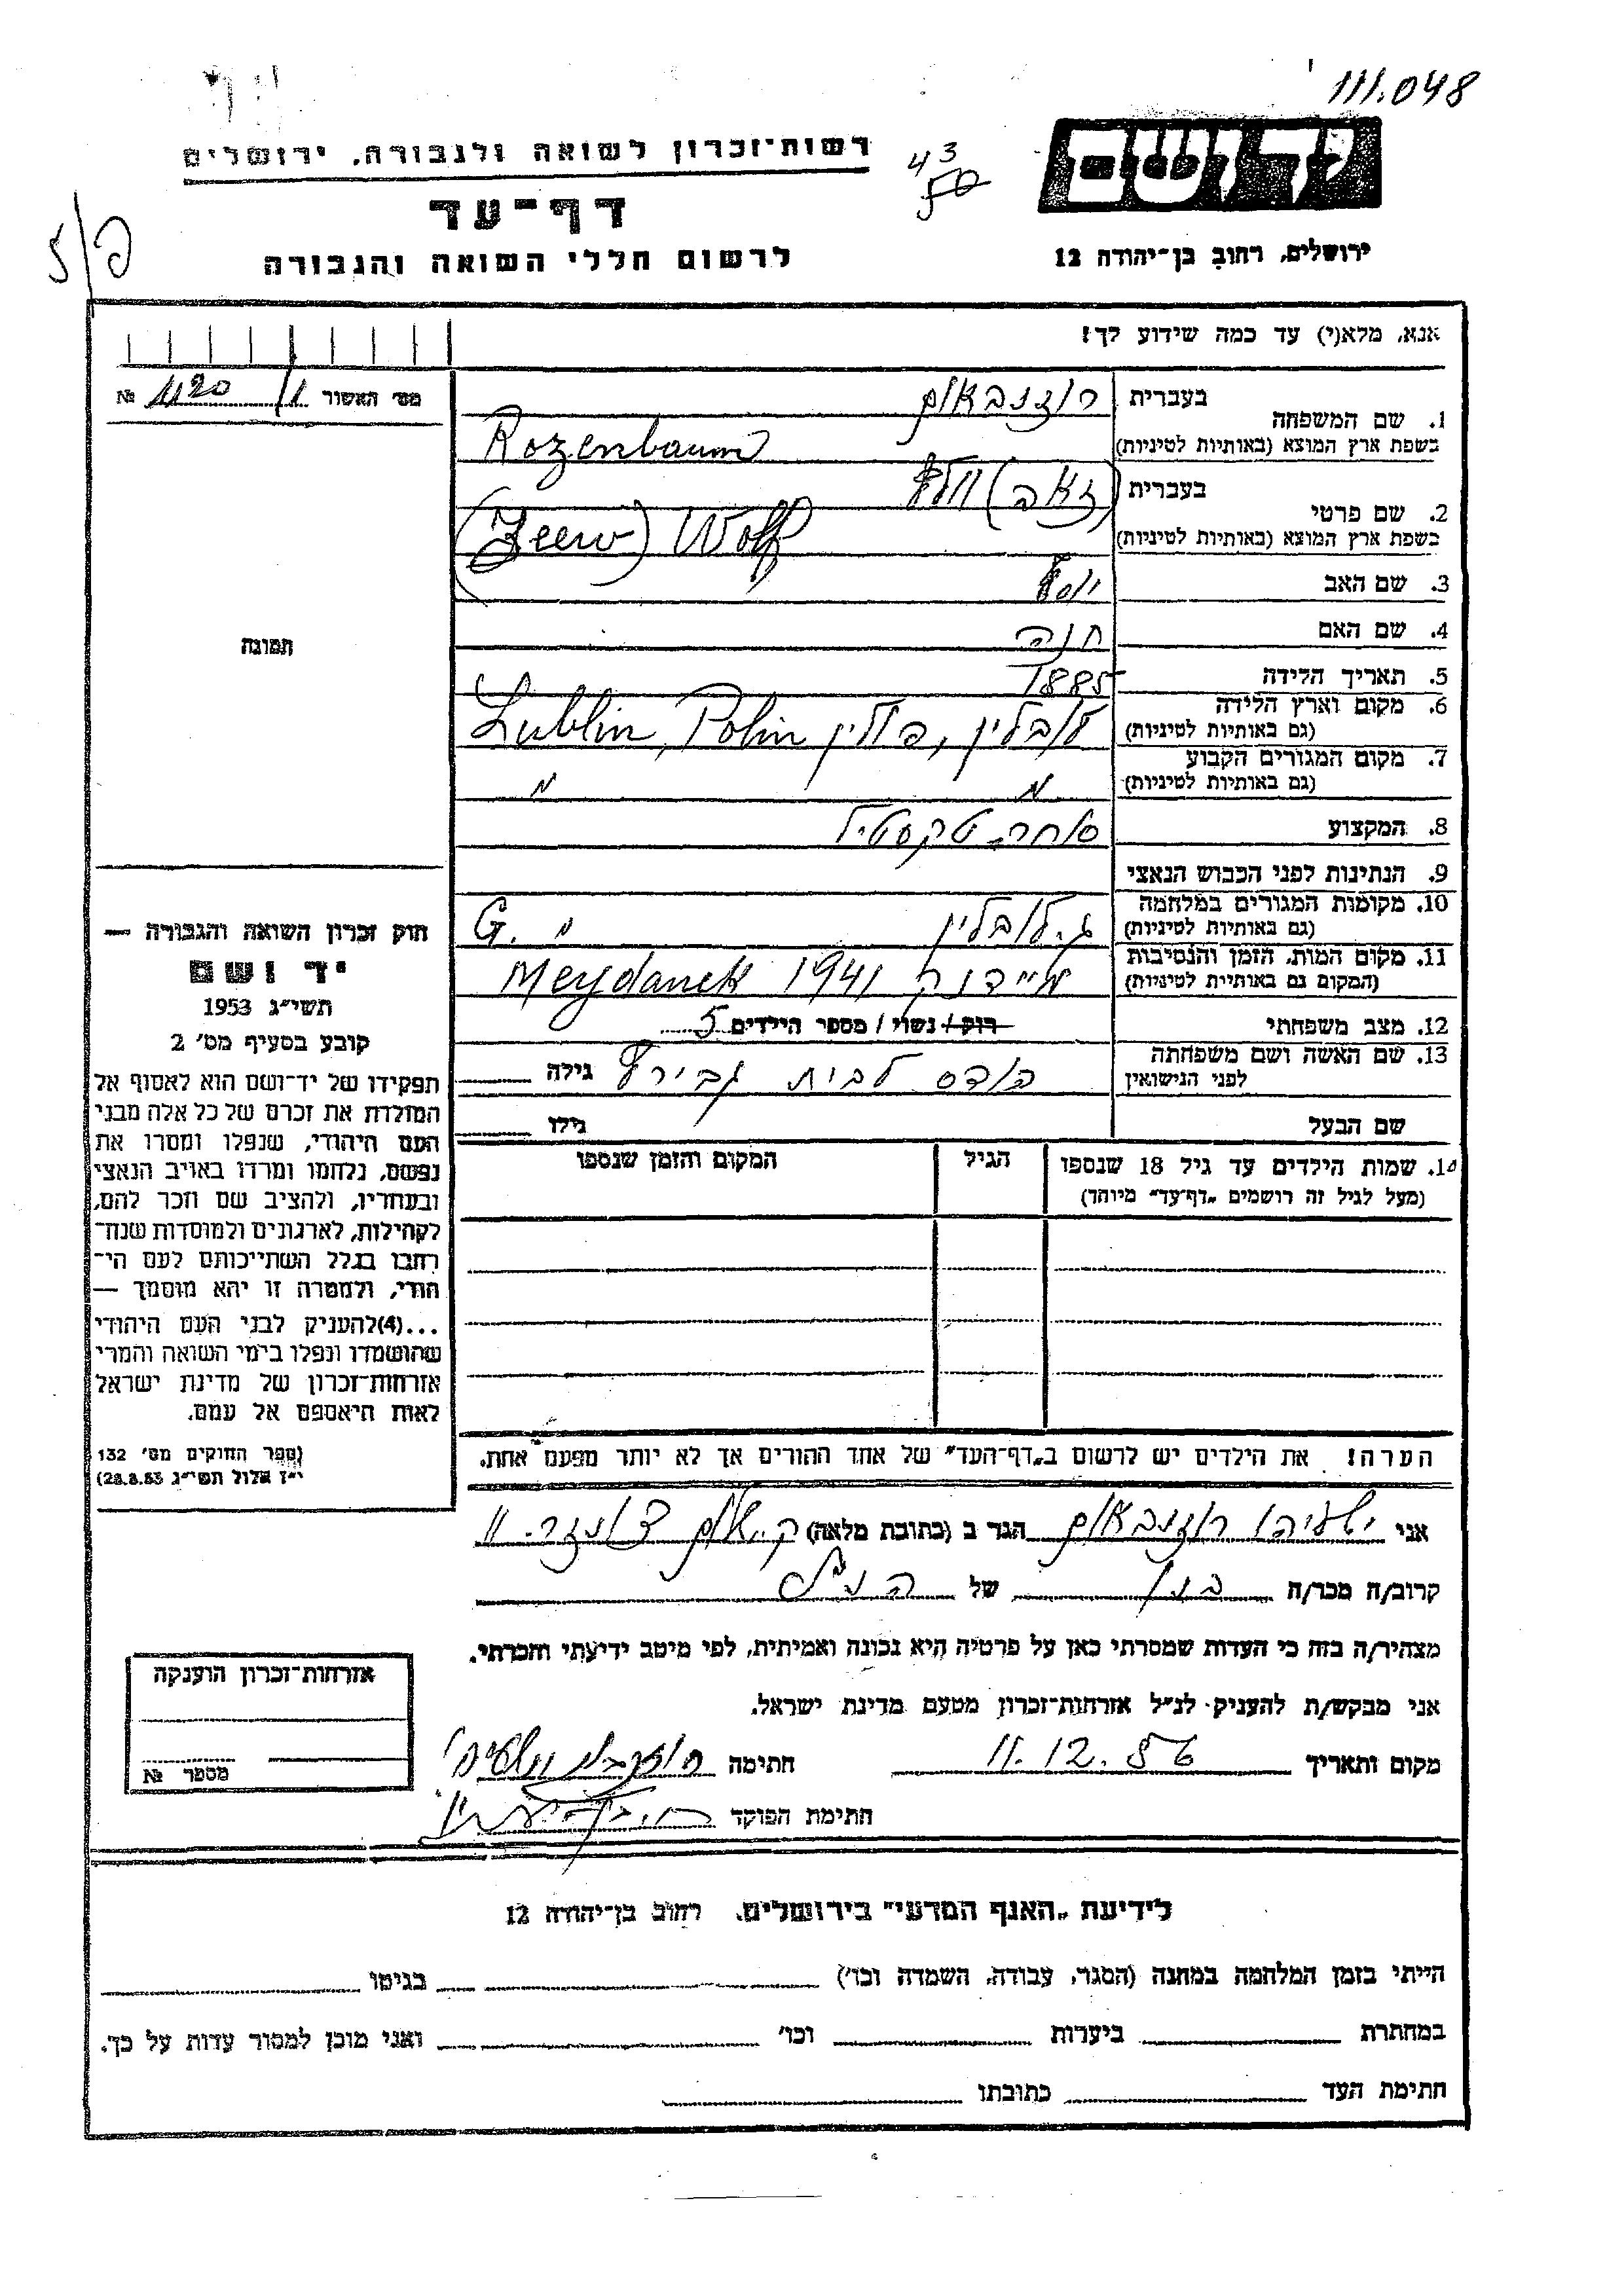 111.048
רשות־זכרון לשואה ולגבורה, ירושלים
43
50
יד ושם
דף־עד
לרשום חללי השואה והגבורה
ירושלים, רחוב בן־יהודה 12
אנא, מלא(י) עד כמה שידוע לך!
מס׳ האשור 1/ 1120 №
1. שם המשפחה
בעברית רוזנבאום
בשפת ארץ המוצא (באותיות לטיניות) Rozenbaum
2. שם פרטי
בעברית (זאב) וולף
בשפת ארץ המוצא (באותיות לטיניות) (Zeew) Wolf
3. שם האב יוסף
4. שם האם חנה
5. תאריך הלידה 1885
6. מקום וארץ הלידה
(גם באותיות לטיניות) לובלין, פולין Lublin, Polin
7. מקום המגורים הקבוע
(גם באותיות לטיניות) " "
8. המקצוע סוחר טקסטיל
9. הנתינות לפני הכבוש הנאצי
10. מקומות המגורים במלחמה
(גם באותיות לטיניות) ג. לובלין " G.
11. מקום המות, הזמן והנסיבות
(המקום גם באותיית לטיניות) מיידנק 1941 Meydanek
12. מצב משפחתי רוק / נשוי / מספר הילדים 5
13. שם האשה ושם משפחתה
לפני הנישואין הודס לבית גבירץ גילה
שם הבעל גילו
14. שמות הילדים עד גיל 18 שנספו
(מעל לגיל זה רושמים „דף־עד״ מיוחד)
הגיל
המקום והזמן שנספו
הערה! את הילדים יש לרשום ב„דף־העד״ של אחד ההורים אך לא יותר מפעם אחת.
תמונה
חוק זכרון השואה והגבורה —
יד ושם
תשי״ג 1953
קובע בסעיף מס׳ 2
תפקידו של יד־ושם הוא לאסוף אל
המולדת את זכרם של כל אלה מבני
העם היהודי, שנפלו ומסרו את
נפשם, נלחמו ומרדו באויב הנאצי
ובעוזריו, ולהציב שם וזכר להם,
לקהילות, לארגונים ולמוסדות שנח־
רחבו בגלל השתייכותם לעם הי־
הודי, ולמטרה זו יהא מוסמך —
...(4)להעניק לבני העם היהודי
שהושמדו ונפלו בימי השואה והמרי
אזרחות־זכרון של מדינת ישראל
לאות היאספם אל עמם.
(ספר החוקים מס׳ 132
י״ז אלול תשי״ג 28.8.53)
אני ישעיהו רוזנבאום הגר ב (כתובת מלאה) ק. שלום 11
קרוב/ה מכר/ה בנו של הנ״ל
מצהיר/ה בזה כי העדות שמסרתי כאן על פרטיה היא נכונה ואמיתית, לפי מיטב ידיעתי והכרתי.
אני מבקש/ת להעניק לנ״ל אזרחות־זכרון מטעם מדינת ישראל.
מקום ותאריך 11.12.56 חתימה
חתימת הפוקד
אזרחות־זכרון הוענקה
מספר №
לידיעת „האגף המדעי״ בירושלים, רחוב בן־יהודה 12
הייתי בזמן המלחמה במחנה (הסגר, עבודה, השמדה וכו׳) בגיטו
במחתרת ביערות וכו׳ ואני מוכן למסור עדות על כך.
חתימת העד כתובתו